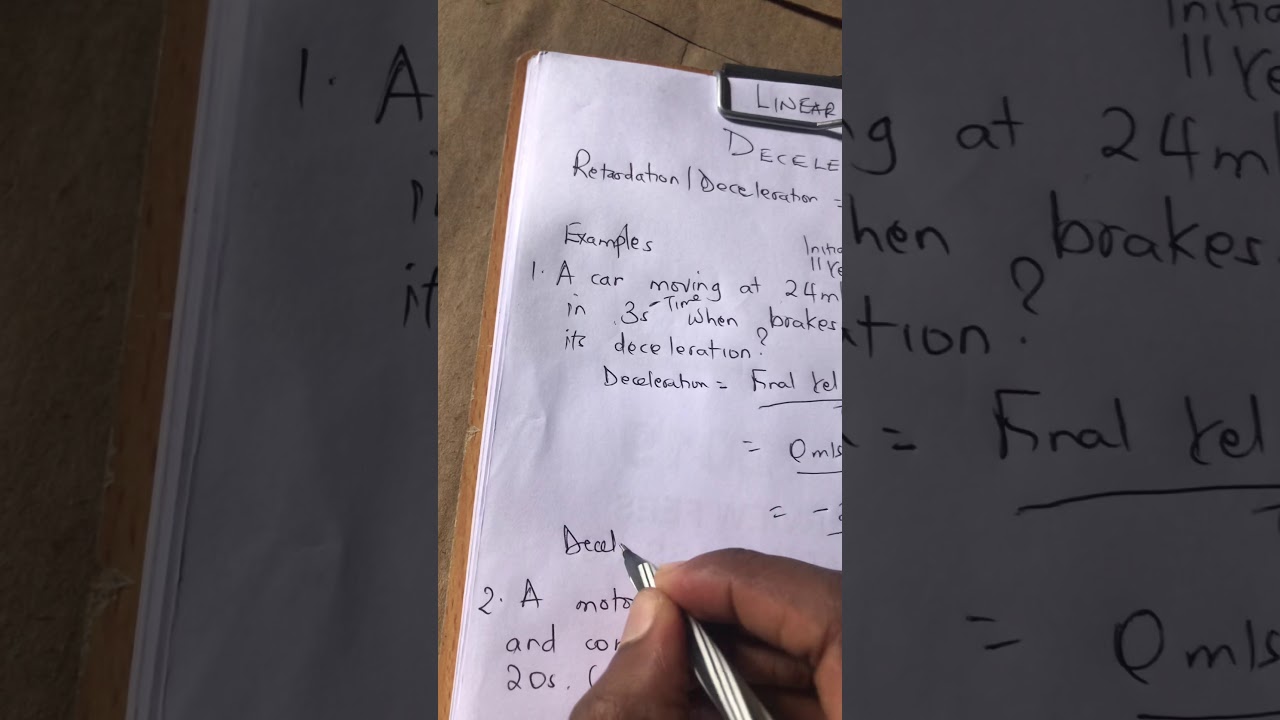 LINEAR
DECELE
Retardation/Deceleration =
Examples
Initia
1. A car moving at 24m/
in 3s - Time when brakes
its deceleration?
Deceleration = Final Vel
= 0m/s
= -
Decel
2. A moto
and co
20s. (